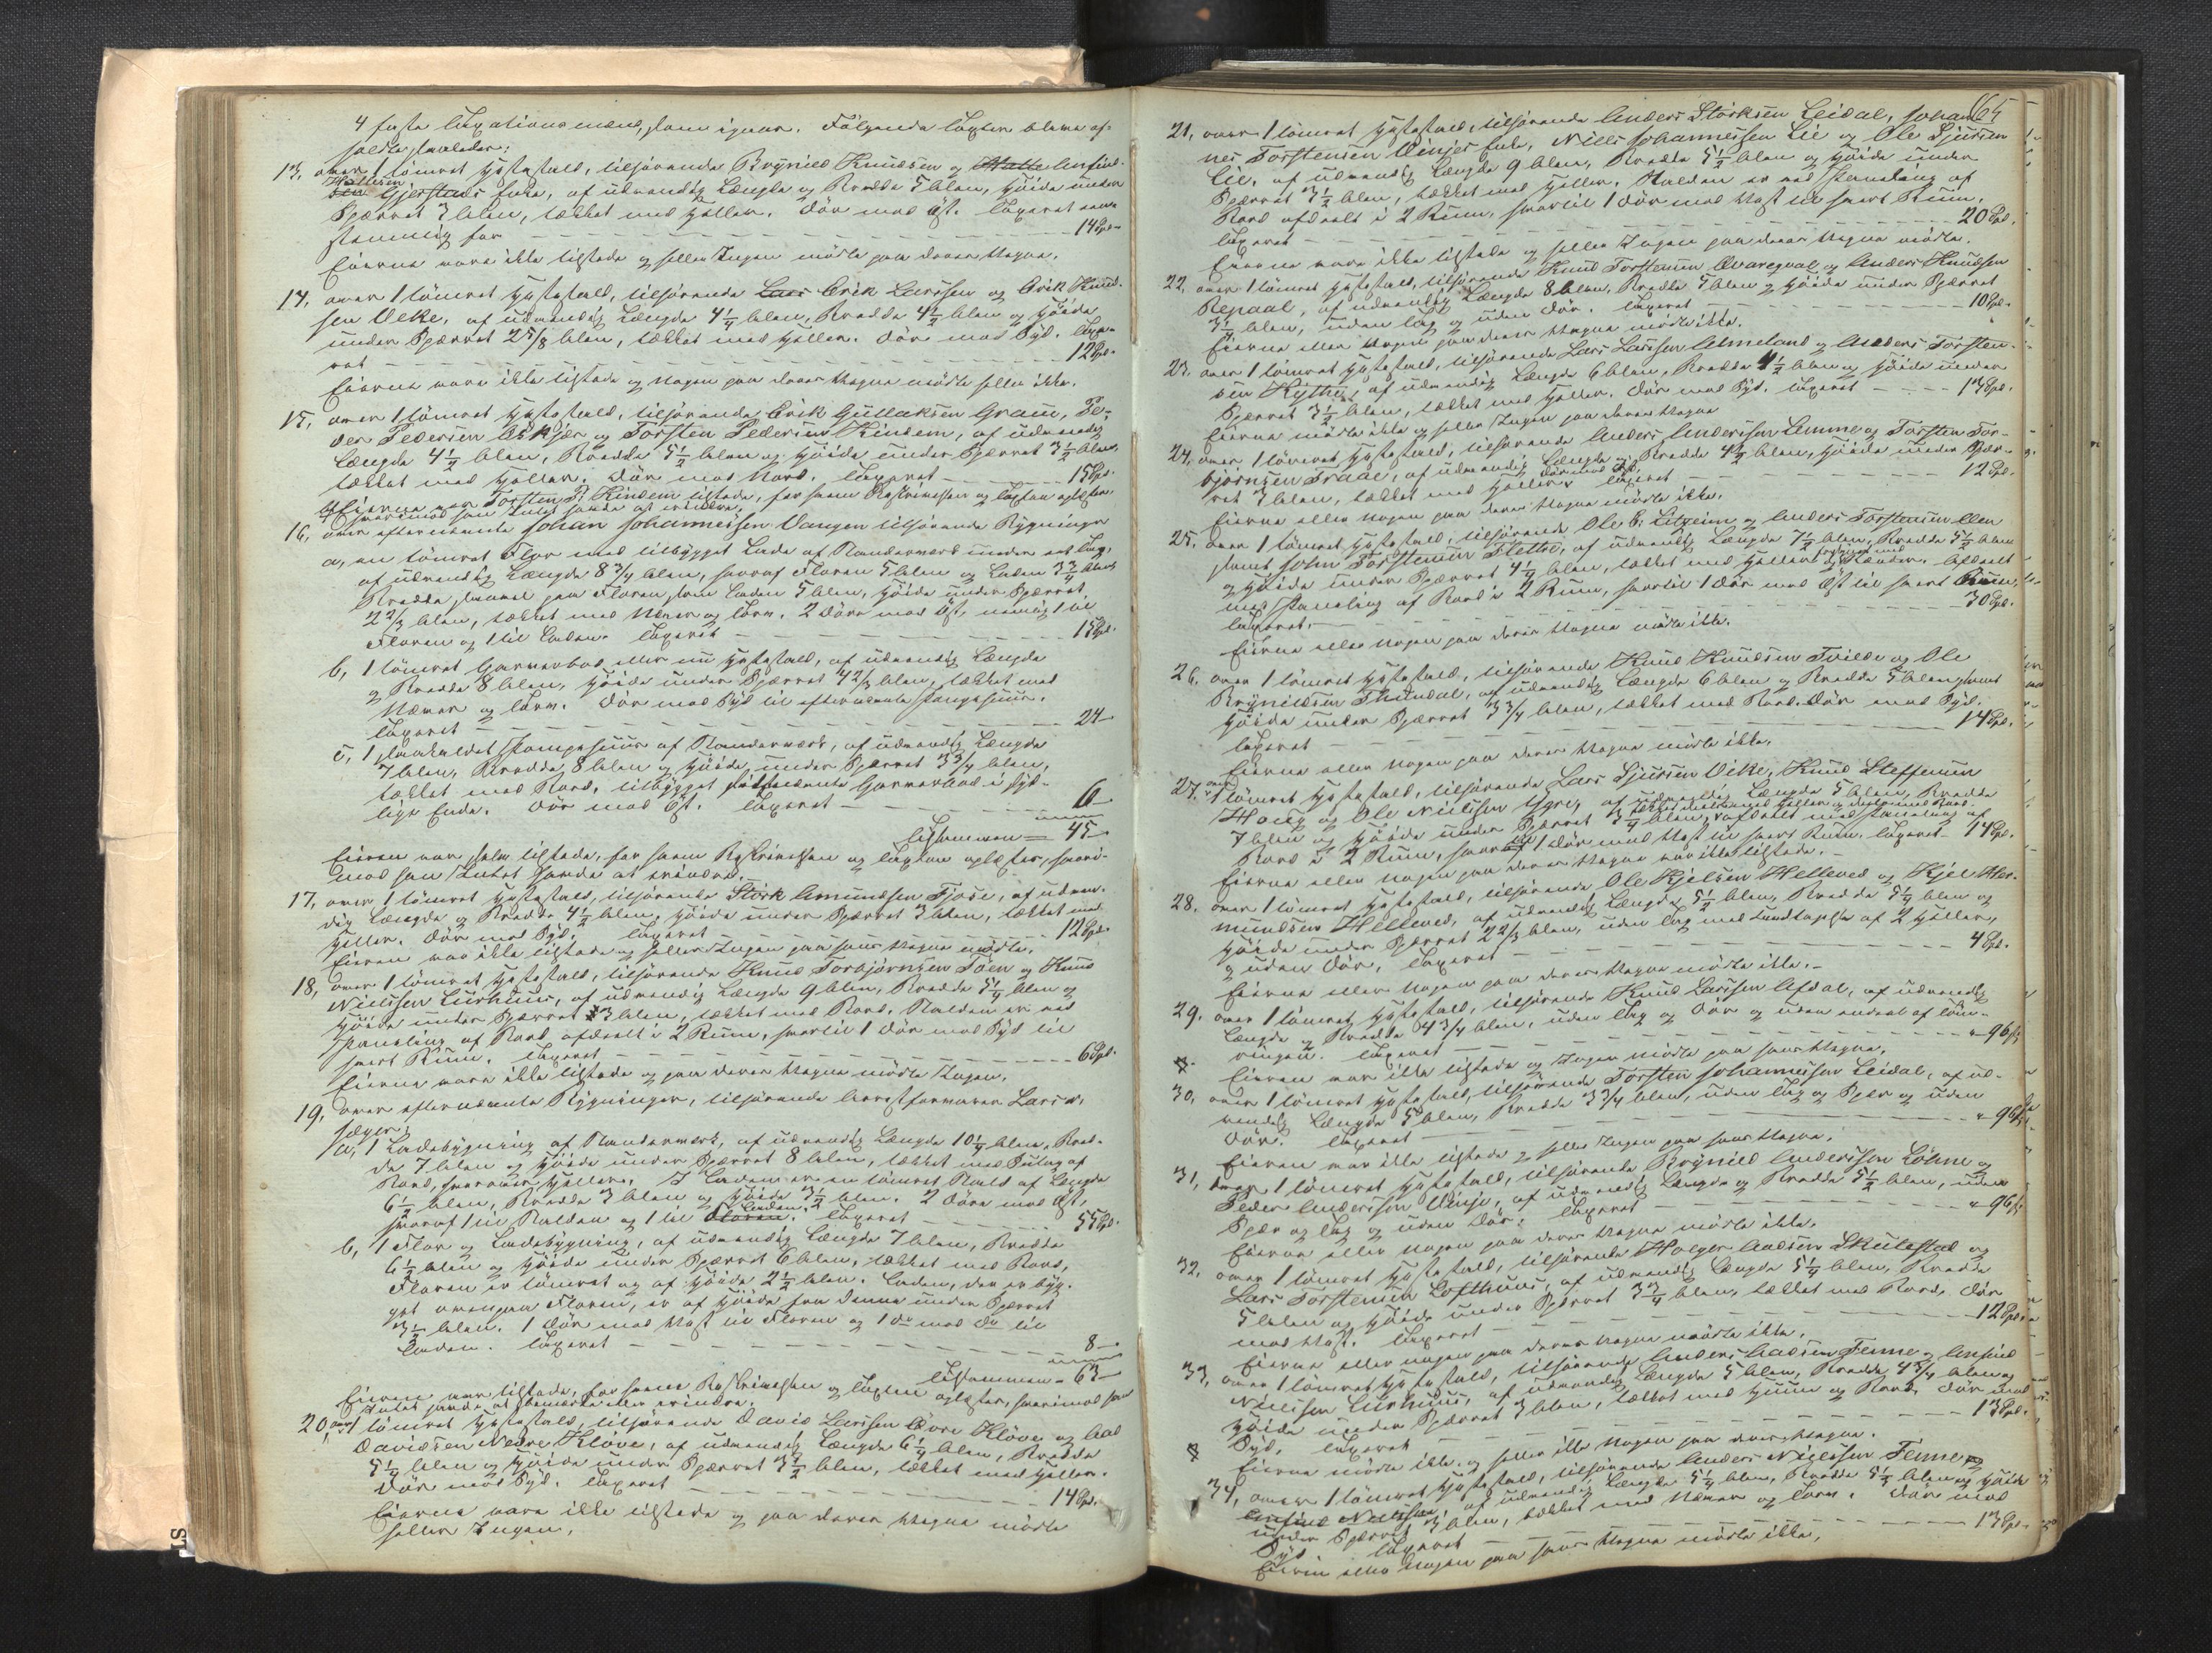 4 faste Taxationsmænd, som igaar. Følgende Taxter bleve af-
holdte saaledes:
13, over 1 tömret Hestestald, tilhørende Brynild Knudsen og
Hallesen Gjerstads Enke, af udvendig Længde og Bredde 5 Alen, Høide under
Sperret 3 Alen, tækket med Heller. Dör mod Öst. Taxeret eens-
stemmig for 14 Spd.
Eierne vare ikke tilstede og heller Ingen mödte paa deres Vegne.
14, over 1 tömret Hestestald, tilhørende Erik Larssen og Erik Knud-
sen Veke, af udvendig Længde 4 1/4 Alen, Bredde 4 1/2 Alen og Höide
under Sperret 2 5/8 Alen, tækket med Heller. Dör mod Syd. Taxe-
ret 12 Spd.
Eierne vare ikke tilstede og Nogen paa deres Vegne mödte heller ikke.
15, over 1 tömret Hestestald, tilhørende Erik Gullaksen Graue, Pe-
der Pedersen Askjær og Torsten Pedersen Kindem, af udvendig
Længde 4 1/2 Alen, Bredde 5 1/2 Alen og Höide under Sperret 3 1/2 Alen,
tækket med Heller. Dör mod Nord. Taxeret 15 Spd.
Af Eierne var Torsten P. Kindem tilstede, for hvem Beskrivelsen og Taxten oplæstes,
hvorimod han Intet havde at erindre.
16, over efternævnte Johan Johannessen Vangen tilhørende Bygninger
a, en tömret Flor med tilbygget Lade af Standerværk under eet Tag,
af udvendig Længde 8 3/4 Alen, hvoraf Floren 5 Alen og Laden 3 3/4 Alen,
Bredde saavel paa Floren som Laden 5 Alen, Höide under Sperret
2 2/3 Alen, tækket med Næver og Torv. 2 Döre mod Öst, nemlig 1 til
Floren og 1 til Laden. Taxeret 15 Spd.
b, 1 tömret Garverbod eller nu Hestestald, af udvendig Længde
og Bredde 8 Alen, Höide under Sperret 4 2/3 Alen, tækket med
Næver og Torv. Dör mod Syd til efternævnte Stampehuus.
Taxeret 24
c, 1 saakaldet Stampehuus af Standerværk, af udvendig Længde
7 Alen, Bredde 8 Alen og Höide under Sperret 3 3/4 Alen,
tækket med Bord, tilbygget sidstnævnte Garverbod i syd-
lige Ende. Dör mod Öst. Taxeret 6
Tilsammen = 45
Eieren var selv tilstede, for hvem Beskrivelsen og Taxten oplæstes, hvori-
mod han Intet havde at erindre.
17, over 1 tömret Hestestald, tilhørende Störk Amundsen Fjose, af udven-
dig Længde og Bredde 4 1/2 Alen, Höide under Sperret 3 Alen, tækket med
Heller. Dör mod Syd. Taxeret 12 Spd.
Eieren var ikke tilstede og heller Ingen paa hans Vegne mödte.
18, over 1 tömret Hestestald, tilhørende Knud Torbjörnsen Töen og Knud
Nielssen Lurhuus, af udvendig Længde 9 Alen, Bredde 5 1/4 Alen og
Höide under Sperret 3 Alen, tækket med Bord. Stalden er ved
Paneling af Bord afdeelt i 2 Rum, hvortil 1 Dör mod Syd til
hvert Rum. Taxeret 6 Spd.
Eierne vare ikke tilstede og paa deres Vegne mödte Ingen.
19, over efternævnte Bygninger, tilhørende Arrestforvarer Lars
Seger:
a, 1 Ladebygning af Standerværk, af udvendig Længde 10 1/4 Alen, Bred-
de 7 Alen og Höide under Sperret 8 Alen, tækket med Sutag af
Bord, hvorover Heller. I Laden er en tömret Stald af Længde
6 1/2 Alen, Bredde 3 Alen og Höide 3 1/2 Alen. 2 Döre mod Öst,
hvoraf 1 til Stalden og 1 til Laden. Taxeret 55 Spd.
b, 1 Flor og Ladebygning, af udvendig Længde 7 Alen, Bredde
6 1/2 Alen og Höide under Sperret 6 Alen, tækket med Bord,
Floren er tömret og af Höide 2 1/2 Alen. Laden, der er byg-
get ovenpaa Floren, er af Höide fra denne under Sperret
3 1/2 Alen. 1 Dör mod Vest til Floren og 1 do mod do til
Laden. Taxeret 8
Tilsammen = 63
Eieren var tilstede, for hvem Beskrivelsen og Taxten oplæstes, hvorimod han
Intet havde at bemærke eller erindre.
20, over 1 tömret Hestestald, tilhørende David Larssen Övre Klöve og
Davidsen Nedre Klöve, af udvendig Længde 6 1/4 Alen, Bredde
5 1/4 Alen og Höide under Sperret 3 1/2 Alen, tækket med Heller.
Dör mod Syd. Taxeret 14 Spd.
Eierne vare ikke tilstede og paa deres Vegne mödte
heller Ingen.
65
21, over 1 tömret Hestestald, tilhørende Anders Störksen Leidal, Johan-
nes Torstensen Vinjes Enke, Niels Johannessen Lie og Ole Sjursen
Lie, af udvendig Længde 9 Alen, Bredde 5 1/2 Alen og Höide under
Sperret 3 1/2 Alen, tækket med Heller. Stalden er ved Paneling af
Bord afdeelt i 2 Rum, hvortil 1 Dör mod Vest til hvert Rum.
Taxeret 20 Spd.
Eierne vare ikke tilstede og heller Ingen paa deres Vegne mödte.
22, over 1 tömret Hestestald, tilhørende Knud Torstensen Qvaregval og Anders Knudsen
Repaal, af udvendig Længde 8 Alen, Bredde 5 Alen og Höide under Sperret
3 1/4 Alen, uden Tag og uden Dör. Taxeret 10 Spd.
Eierne eller Nogen paa deres Vegne mödte ikke.
23, over 1 tömret Hestestald, tilhørende Lars Larssen Almeland og Anders Torsten-
sen Kythe, af udvendig Længde 6 Alen, Bredde 4 1/2 Alen og Höide under
Sperret 3 1/2 Alen, tækket med Heller. Dör mod Syd. Taxeret 13 Spd.
Eierne mödte ikke og heller Ingen paa deres Vegne
24, over 1 tömret Hestestald, tilhørende Anders Anderssen Lemme og Torsten Tor-
björnsen Traae, af udvendig Længde og Bredde 4 1/2 Alen, Höide under Sper-
ret 3 Alen, tækket med Heller, Dör mod Syd. Taxeret 12 Spd.
Eierne eller Nogen paa deres Vegne mödte ikke.
25, over 1 tömret Hestestald, tilhørende Ole E. Litzeim og Anders Torstensen
samt John Torstensen Flette, af udvendig Længde 7 1/2 Alen, Bredde 5 1/2 Alen
og Höide under Sperret 4 1/4 Alen, tækket med Heller og Afdeelt
med Paneling af Bord i 2 Rum, hvortil 1 Dör mod Öst til hvert Rum.
Taxeret. 30 Spd.
Eierne eller Nogen paa deres Vegne mödte ikke.
26, over 1 tömret Hestestald, tilhørende Knud Knudsen Tvilde og Ole
Brynildsen Thundal, af udvendig Længde 6 Alen og Bredde 5 Alen samt
Höide under Sperret 3 3/4 Alen, tækket med Bord. Dör mod Syd.
Taxeret 14 Spd.
Eierne eller Nogen paa deres Vegne mödte ikke.
27, over 1 tömret Hestestald, tilhørende Lars Sjursen Veke, Knud Steffensen
Houg og Ole Nielssen Ygre, af udvendig Længde 5 Alen, Bredde
7 Alen og Höide under Sperret 3 1/4 Alen, tækket deels med Heller og deels med Bord. afdeelt med Paneling af
Bord i 2 Rum, hvortil 1 Dör mod Vest til hvert Rum. Taxeret 14 Spd.
Eierne eller Nogen paa deres Vegne var ikke tilstede.
28, over 1 tömret Hestestald, tilhørende Ole Kjelsen Helleved og Kjel Her-
mundsen Helleved, af udvendig Længde 5 1/2 Alen, Bredde 5 1/4 Alen og
Höide under Sperret 2 2/3 Alen, uden Tag med Undtagelse af 2 Heller,
og uden Dör. Taxeret 4 Spd.
Eierne eller Nogen paa deres Vegne mödte ikke.
29, over 1 tömret Hestestald, tilhørende Knud Larssen Afdal, af udvendig
Længde og Bredde 4 3/4 Alen, uden Tag og Dör og uden endeel af Töm-
ringen. Taxeret " 96 ß
Eieren var ikke tilstede og Ingen mödte paa hans Vegne.
30, over 1 tömret Hestestald, tilhørende Torsten Johannessen Leidal, af ud-
vendig Længde 5 Alen, Bredde 3 3/4 Alen, uden Tag og Sper og uden
Dör. Taxeret " 96 ß
Eieren var ikke tilstede og heller Ingen paa hans Vegne.
31, over 1 tömret Hestestald, tilhørende Brynild Anderssen Löhne og
Peder Anderssen Vinje, af udvendig Længde og Bredde 5 1/2 Alen, uden
Sper og Tag og uden Dör. Taxeret " 96 ß
Eierne eller Nogen paa deres Vegne mödte ikke.
32, over 1 tömret Hestestald, tilhørende Holger Aadsen Skutestad og
Lars Torstensen Lofthuus, af udvendig Længde 5 1/4 Alen, Bredde
5 Alen og Höide under Sperret 3 3/4 Alen, tækket med Bord. Dör
mod Vest. Taxeret 12 Spd.
Eierne eller Nogen paa deres Vegne mödte ikke.
33, over 1 tömret Hestestald, tilhørende Anders Aadsen Fenne og Anfind
Nielssen Lurhuus, af udvendig Længde 5 Alen, Bredde 4 3/4 Alen og
Höide under Sperret 3 Alen, tækket med Huun og Bord. Dör mod
Syd. Taxeret 13 Spd.
Eierne mödte ikke og heller ikke Nogen paa deres Vegne.
34, over 1 tömret Hestestald, tilhørende Anders Nielssen Fenne og
Anfind Nielssen, af udvendig Længde 5 1/4 Alen, Bredde 5 1/2 Alen og Höide
under Sperret 3 Alen, tækket med Næver og Torv. Dör mod
Syd. Taxeret 13 Spd.
Eieren eller Nogen paa hans Vegne mödte ikke.